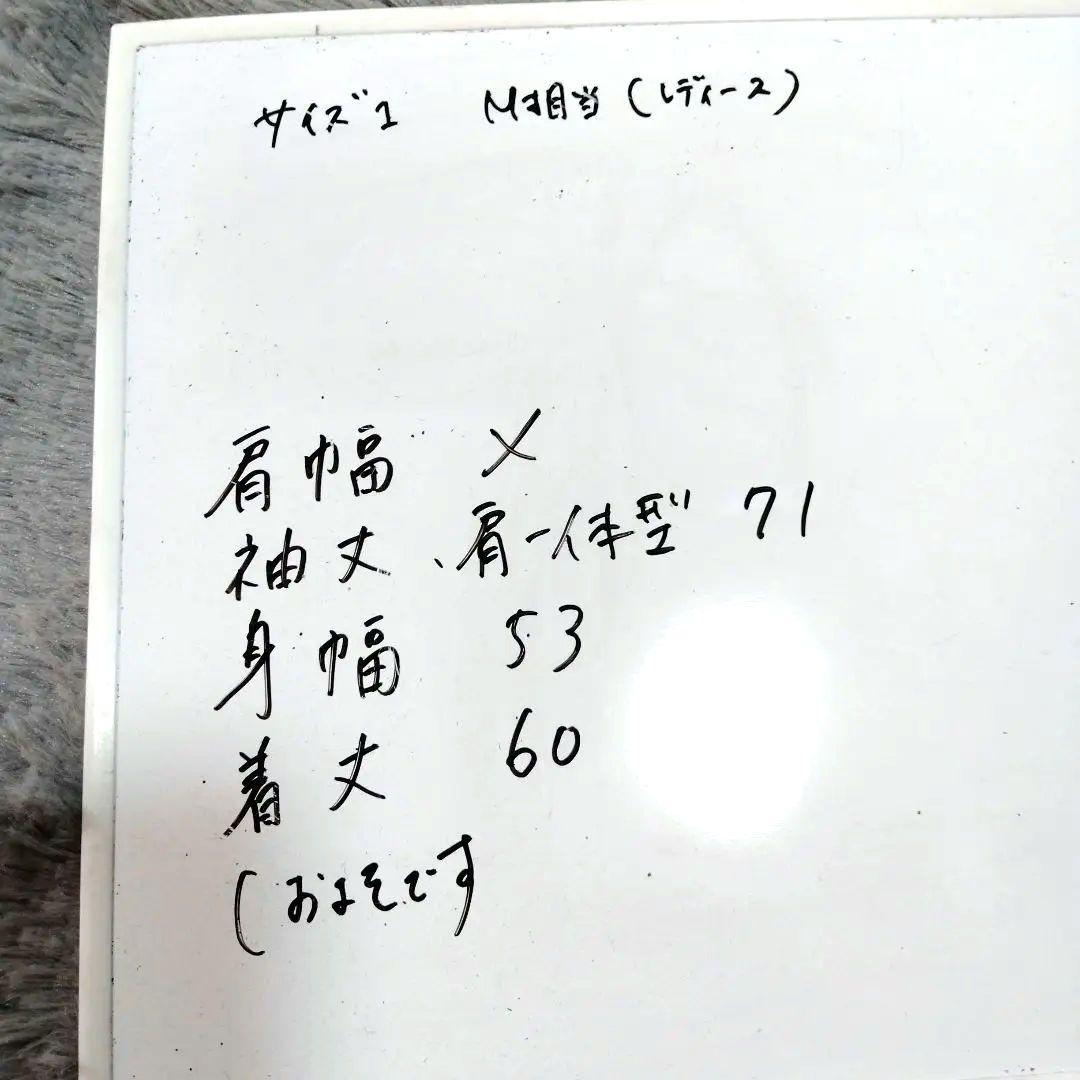 サイズ1 M相当(レディース)
肩幅 ×
袖丈、肩一体型 71
身幅 53
着丈 60
(およそです